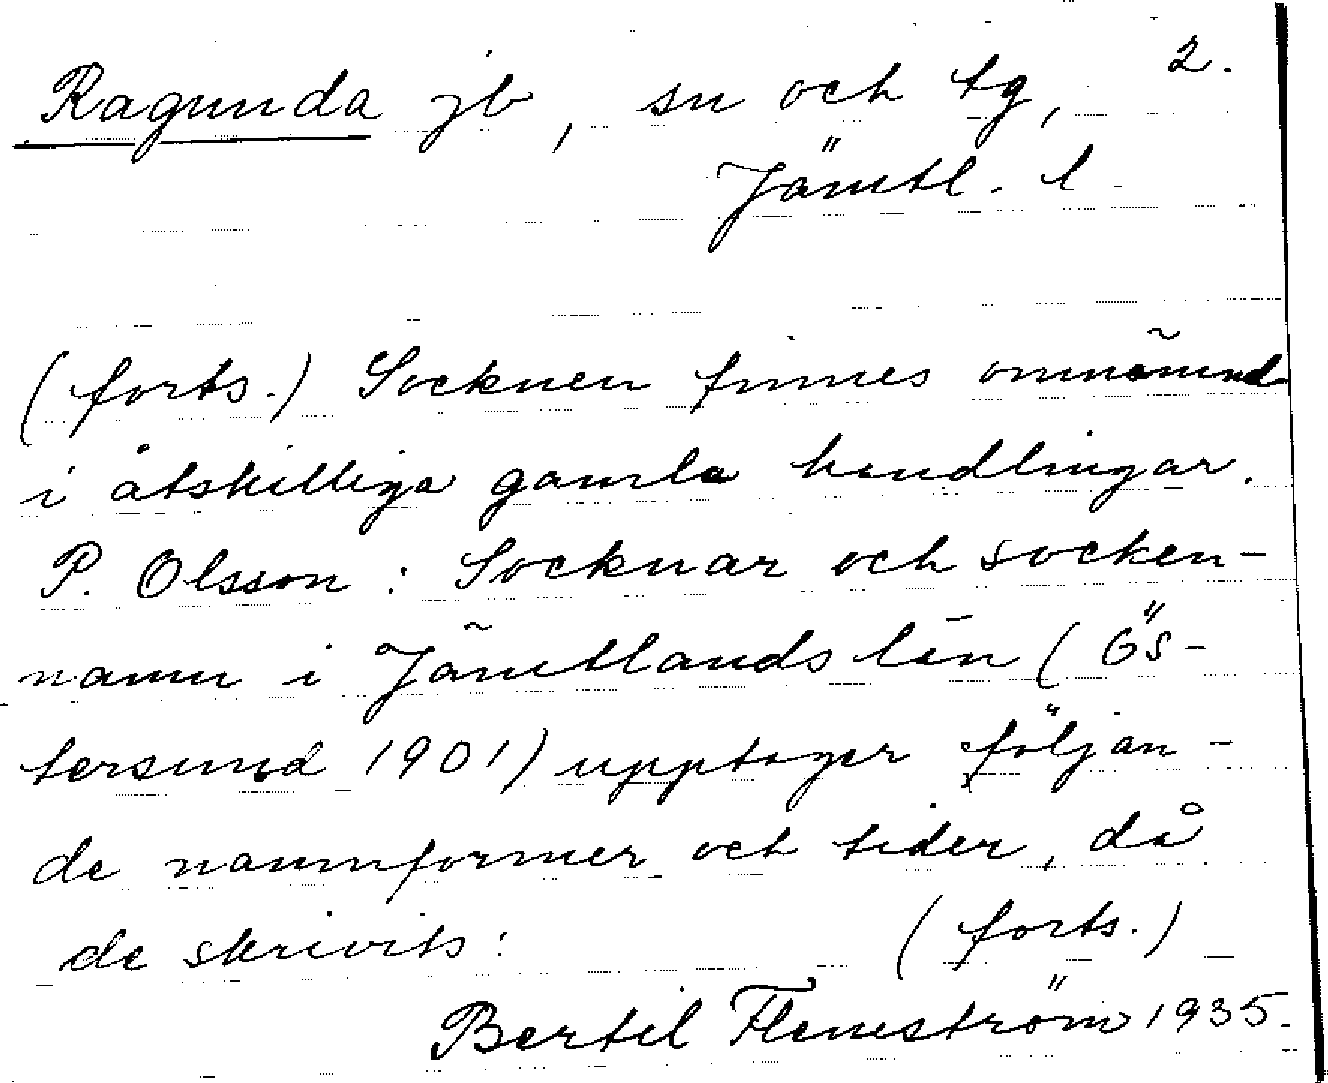 Ragunda jb, sn och tg, 2.
Jämtl. l.
(forts.) Socknen finnes omnämnd
i åtskilliga gamla handlingar.
P. Olsson: Socknar och socken-
namn i Jämtlands län (Ös-
tersund 1901) upptager följan-
de namnformer och tider, då
de skrivits: (forts.)
Bertil Flemström 1935.